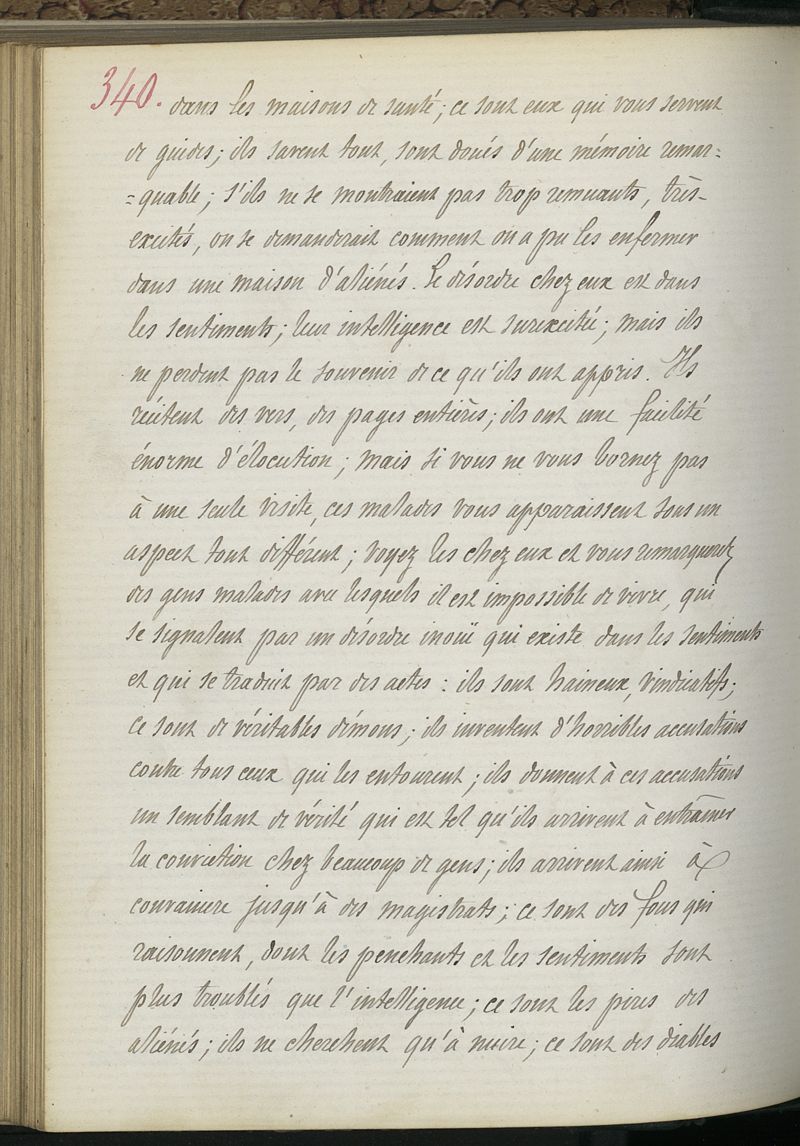 340. dans les maisons de santé; ce sont eux qui vous servent
de guides; ils savent tout, sont doués d'une mémoire remar=
=quable; s'ils ne se montraient pas trop remuants, très-
excités, on se demanderait comment on a pu les enfermer
dans une maison d'aliénés. Le désordre chez eux est dans
les sentiments; leur intelligence est surexcitée; mais ils
ne perdent pas le souvenir de ce qu'ils ont appris. Ils
récitent des vers, des pages entières; ils ont une facilité
énorme d'élocution; mais si vous ne vous bornez pas
à une seule visite, ces malades vous apparaissent sous un
aspect tout différent; voyez les chez eux et vous remarquerez
des gens malades avec lesquels il est impossible de vivre, qui
se signalent par un désordre inouï qui existe dans les sentiments
et qui se traduit par des actes: ils sont haineux, vindicatifs;
ce sont de véritables démons; ils inventent d'horribles accusations
contre tous ceux qui les entourent; ils donnent à ces accusations
un semblant de vérité qui est tel qu'ils arrivent à entraîner
la conviction chez beaucoup de gens; ils arrivent ainsi à
convaincre jusqu'à des magistrats; ce sont des fous qui
raisonnent, dont les penchants et les sentiments sont
plus troublés que l'intelligence; ce sont les pires des
aliénés; ils ne cherchent qu'à nuire; ce sont des diables